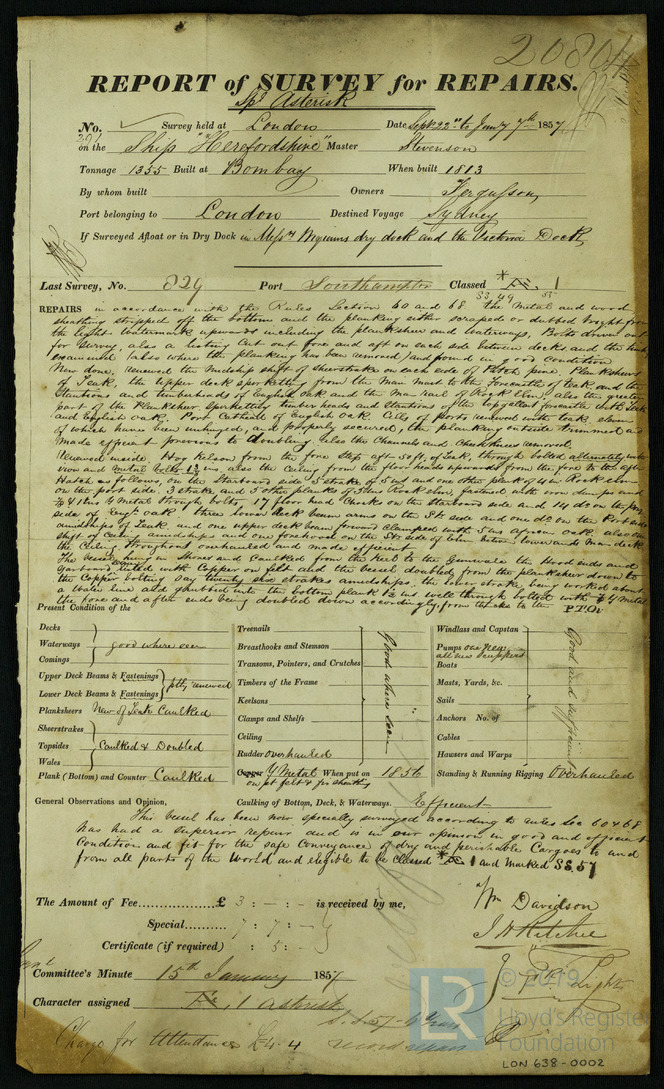 20804
REPORT of SURVEY for REPAIRS.
Spl Asterisk
No. Survey held at London Date Sept 22nd to Jany 7th 1857
on the Ship "Herefordshire" Master Stevenson
Tonnage 1355 Built at Bombay When built 1813
By whom built Owners Fergusson
Port belonging to London Destined Voyage Sydney
If Surveyed Afloat or in Dry Dock in Messrs Wigrams dry dock and the Victoria Dock
Last Survey, No. 829 Port Southampton Classed * Æ 1
REPAIRS in accordance with the Rules Section 60 and 68 the Metal and wood
sheathing stripped off the bottom and the planking either scraped or dubbed bright from
the light Watermark upwards including the planksheer and Waterways, Bolts driven out
for Survey, also a listing cut out fore and aft on each side between decks and the timbers
examined (also where the planking has been removed) and found in good condition
New done, renewed the midship shift of sheerstrake on each side of Pitch pine. Planksheers
of Teak, the upper deck spirketting from the Main mast to the forecastle of Teak and the
Stantions and timberheads of English Oak and the Main rail of Rock Elm, also the greater
part of the Planksheer spirketting timber heads and Stantions of the topgallant forecastle with teak
and English oak. Port Cathead of English Oak Cills of Ports renewed with teak, eleven
of which have been unhinged, and properly secured, the planking outside trimmed and
made efficient previous to doubling, also the Channels and removed.
Renewed inside, Hog Kelson from the fore Step aft 50 ft, of Teak, through bolted alternately with
iron and metal bolts 1 3/8 ins, also the Ceiling from the floor heads upwards from the fore to the after
Hatch as follows, on the Starboard side 5 strake of 5 ins and one other plank of 4 in Rock elm
on the port side, 3 strake and 3 other planks of 5 ins Rock elm, fastened with iron dumps and
Metal through bolts, 17 floor head chocks on the Starboard side and 14 do on the port
side of Engh oak three lower deck beam arms on the St side and one do on the Port side
amidships of Teak and one upper deck beam forward clamped with 5 ins african oak also one
shift of amidships and one forehook on the St side of below lower deck
the Ceiling throughout overhauled and made efficient
The Vessel being Shored and Caulked from the Keel to the Gunwale the Hood ends and
Garboard with Copper on felt and the Vessel doubled from the planksheer down to
the Copper bolting say twenty six strakes amidships, the lower strake being worked about
a Water line and rabbited into the bottom plank 1 1/2 ins well through bolted with Y Metal
the fore and after ends being doubled down accordingly from to the P.T.O.
Present Condition of the
Decks
Waterways good where seen
Comings
Upper Deck Beams & Fastenings
Lower Deck Beams & Fastenings ptly renewed
Planksheers New of Teak Caulked
Sheerstrakes
Topsides Caulked & Doubled
Wales
Plank (Bottom) and Counter Caulked
Treenails
Breasthooks and Stemson
Transoms, Pointers, and Crutches
Timbers of the Frame
Keelsons
Clamps and Shelfs
Ceiling
Good where seen
Rudder overhauled
Copper Y Metal When put on 1856
on felt & fir sheathing
Windlass and Capstan
Pumps one New
all new
Boats
Masts, Yards, &c.
Sails
Anchors No. of
Cables
Hawsers and Warps
Good and sufficient
Standing & Running Rigging Overhauled
General Observations and Opinion, Caulking of Bottom, Deck, & Waterways. Efficient
This Vessel has been now specially surveyed according to rules Sec 60 & 68
has had a superior repair and is in our opinion in good and efficient
Condition and fit for the safe conveyance of dry and perishable Cargoes to and
from all parts of the World and eligible to be Classed * Æ 1 and Marked SS 57
The Amount of Fee £ 3 : - : - is received by me,
Special 7 : 7 : -
Certificate (if required) : 5 : -
Wm Davidson
J H Ritchie
J. P. Light
Committee's Minute 15th January 1857
Character assigned Æ. 1 Asterisk
S.S. 57
Charge for Attendance £4.4
© 2019
LR
Lloyd's Register
Foundation
LON 638-0002